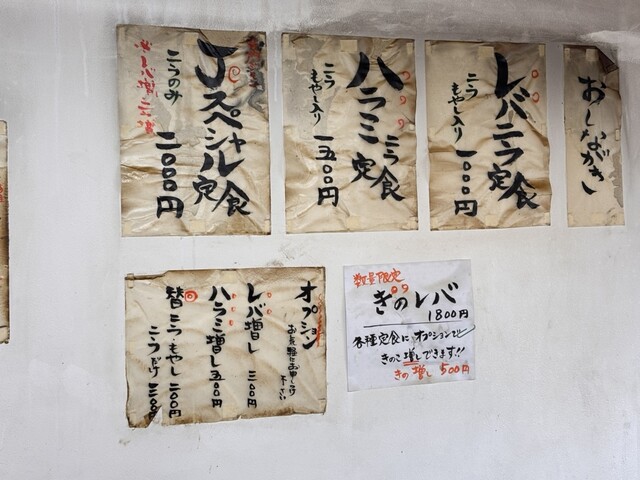 おしながき
レバニラ定食
ニラ
もやし入り
一000円
ハラミニラ定食
ニラ
もやし入り
一五00円
Jスペシャル定食
ニラのみ
二000円
オプション
お気軽にお申し付け
下さい
レバ増し 三00円
ハラミ増し五00円
替ニラ・もやし 二00円
ニラだけ 三00円
数量限定
ぎのレバ
1800円
各種定食にオプションで
きのこ増しできます!!
きの増し 500円